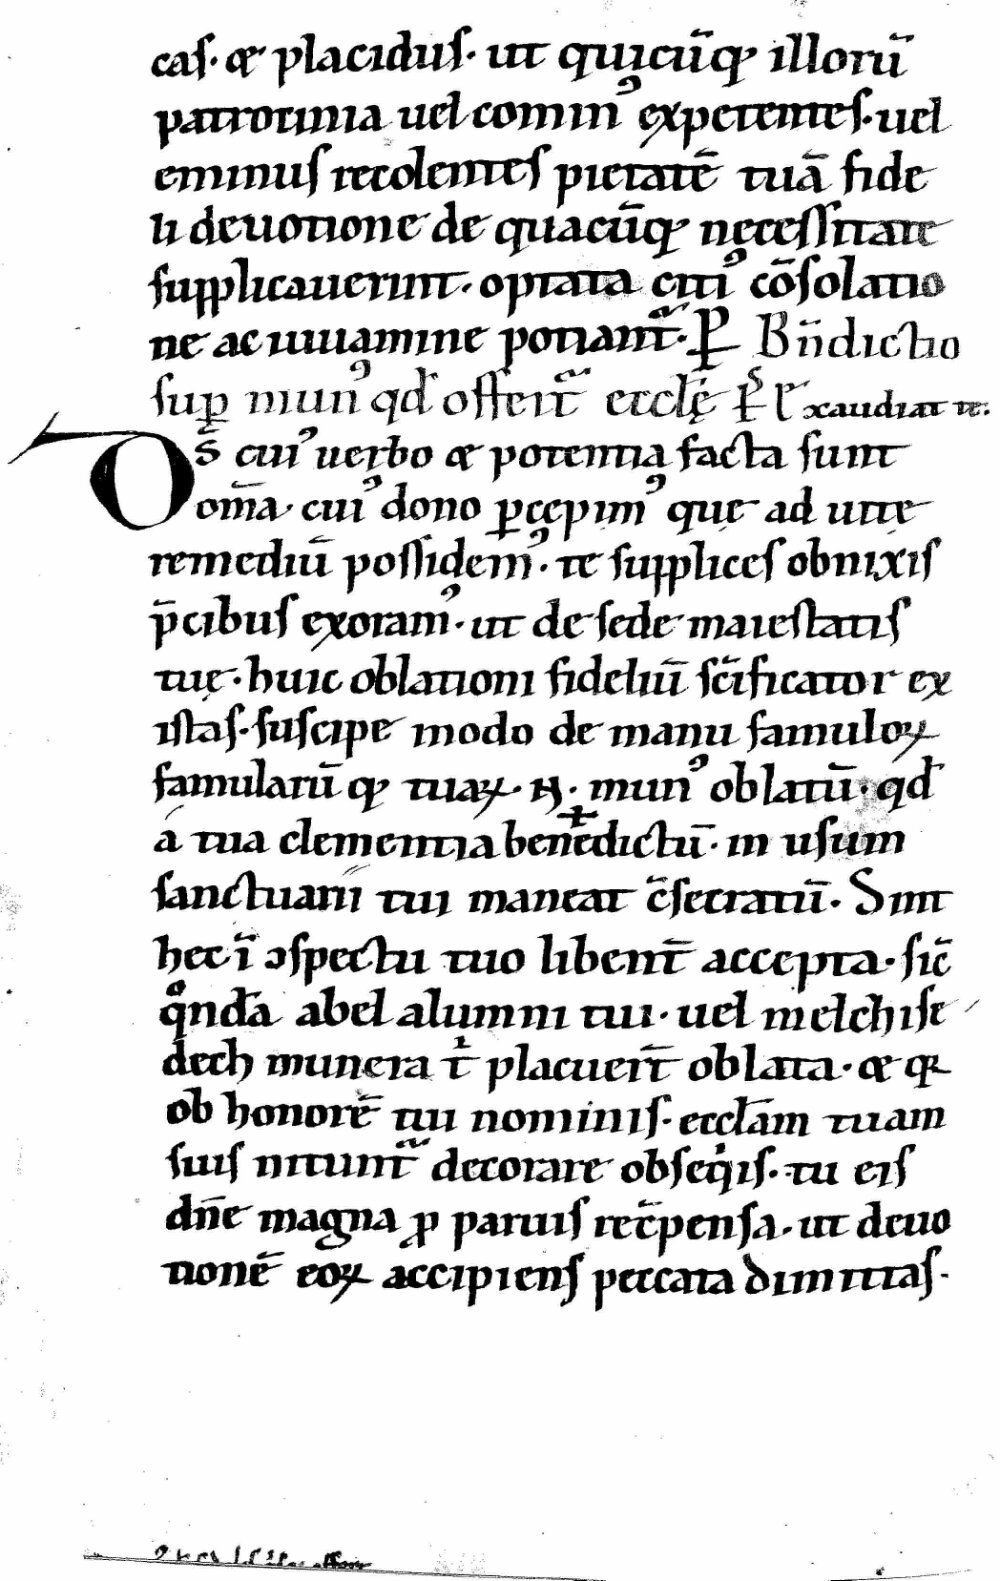 cas. & placidus. ut quicūq; illorū
patrocinia uel commin᾿ expetentes. uel
eminus recolentes pietatē tuā fide
li deuotione de quacūq; necessitate
supplicauerint. optata citi᾿ cōsolatio
ne ac iuuamine potiant᷑. P̲ Bn̄dictio
sup̲ mun᾿ qd̄ offert᷑ ecclę̄ P̄s Exaudiat te.
Ds̄ cui᾿ uerbo & potentia facta sunt
om̄a. cui᾿ dono p̲cepim᾿ que ad uitę
remediū possidem᾿. te supplices obnixis
p̄cibus exoram᾿. ut de sede maiestatis
tuę. huic oblationi fideliū sc̄ificator ex
istas. suscipe modo de manu famuloꝝ
famularū q; tuaꝝ. N. mun᾿ oblatū. qd̄
a tua clementia bene✝dictū. in usum
sanctuarii tui maneat c̄secratū. Sint
hec ī ɔspectu tuo libent̄ accepta. sic̄
qͦndā abel alumni tui. uel melchise
dech munera tⁱ placuert̄ oblata. & q̲
ob honorē tui nominis. ecclā̄m tuam
suis nitunt᷑ decorare obseqⁱis. tu eis
dn̄e magna ꝓ paruis rec̄pensa. ut deuo
tionē eoꝝ accipiens peccata dimittas.